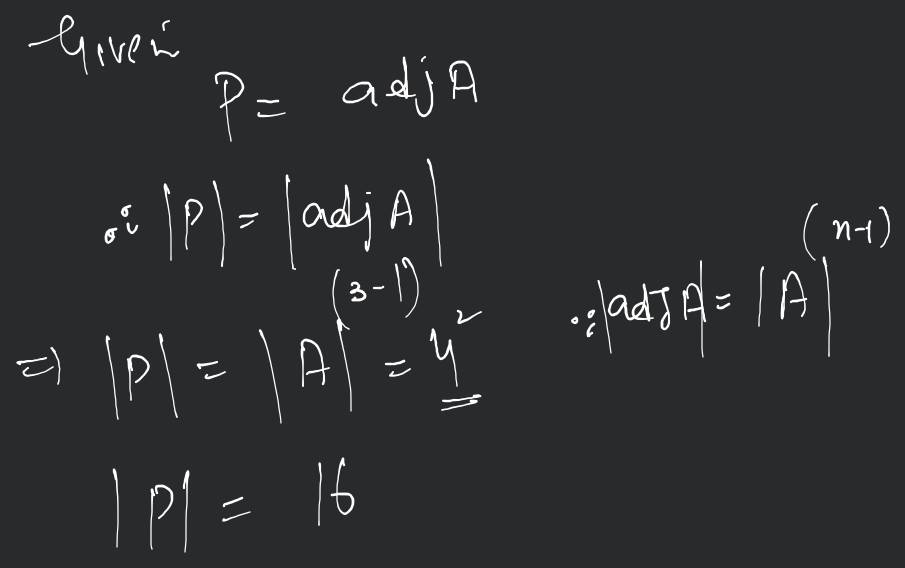 Given
P = adj A
∴ |P| = |adj A|
⇒ |P| = |A|^(3-1) = 4^2
∵ |adj A| = |A|^(n-1)
|P| = 16